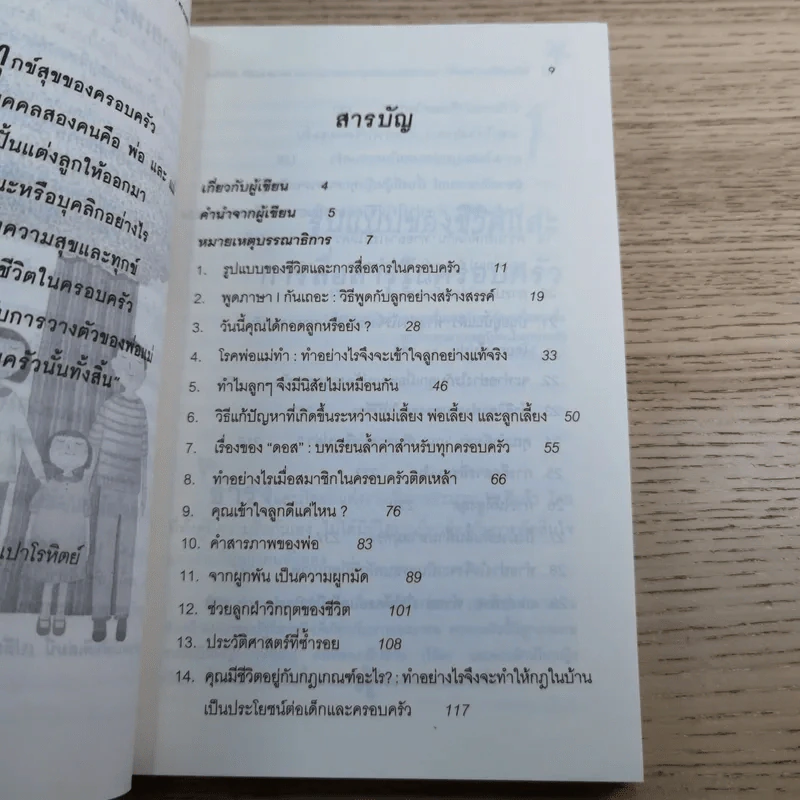 กข์สุขของครอบครัว
คคลสองคนคือ พ่อ และ แม่
ปั้นแต่งลูกให้ออกมา
นะหรือบุคลิกอย่างไร
ความสุขและทุกข์
ชีวิตในครอบครัว
บการวางตัวของพ่อแม่
ครัวนั้นทั้งสิ้น"
เปาโรหิตย์
9
สารบัญ
เกี่ยวกับผู้เขียน 4
คำนำจากผู้เขียน 5
หมายเหตุบรรณาธิการ 7
1. รูปแบบของชีวิตและการสื่อสารในครอบครัว 11
2. พูดภาษา I กันเถอะ : วิธีพูดกับลูกอย่างสร้างสรรค์ 19
3. วันนี้คุณได้กอดลูกหรือยัง ? 28
4. โรคพ่อแม่ทำ : ทำอย่างไรจึงจะเข้าใจลูกอย่างแท้จริง 33
5. ทำไมลูกๆ จึงมีนิสัยไม่เหมือนกัน 46
6. วิธีแก้ปัญหาที่เกิดขึ้นระหว่างแม่เลี้ยง พ่อเลี้ยง และลูกเลี้ยง 50
7. เรื่องของ "ดอส" : บทเรียนล้ำค่าสำหรับทุกครอบครัว 55
8. ทำอย่างไรเมื่อสมาชิกในครอบครัวติดเหล้า 66
9. คุณเข้าใจลูกดีแค่ไหน ? 76
10. คำสารภาพของพ่อ 83
11. จากผูกพัน เป็นความผูกมัด 89
12. ช่วยลูกฝ่าวิกฤตของชีวิต 101
13. ประวัติศาสตร์ที่ซ้ำรอย 108
14. คุณมีชีวิตอยู่กับกฎเกณฑ์อะไร? : ทำอย่างไรจึงจะทำให้กฎในบ้าน
เป็นประโยชน์ต่อเด็กและครอบครัว 117